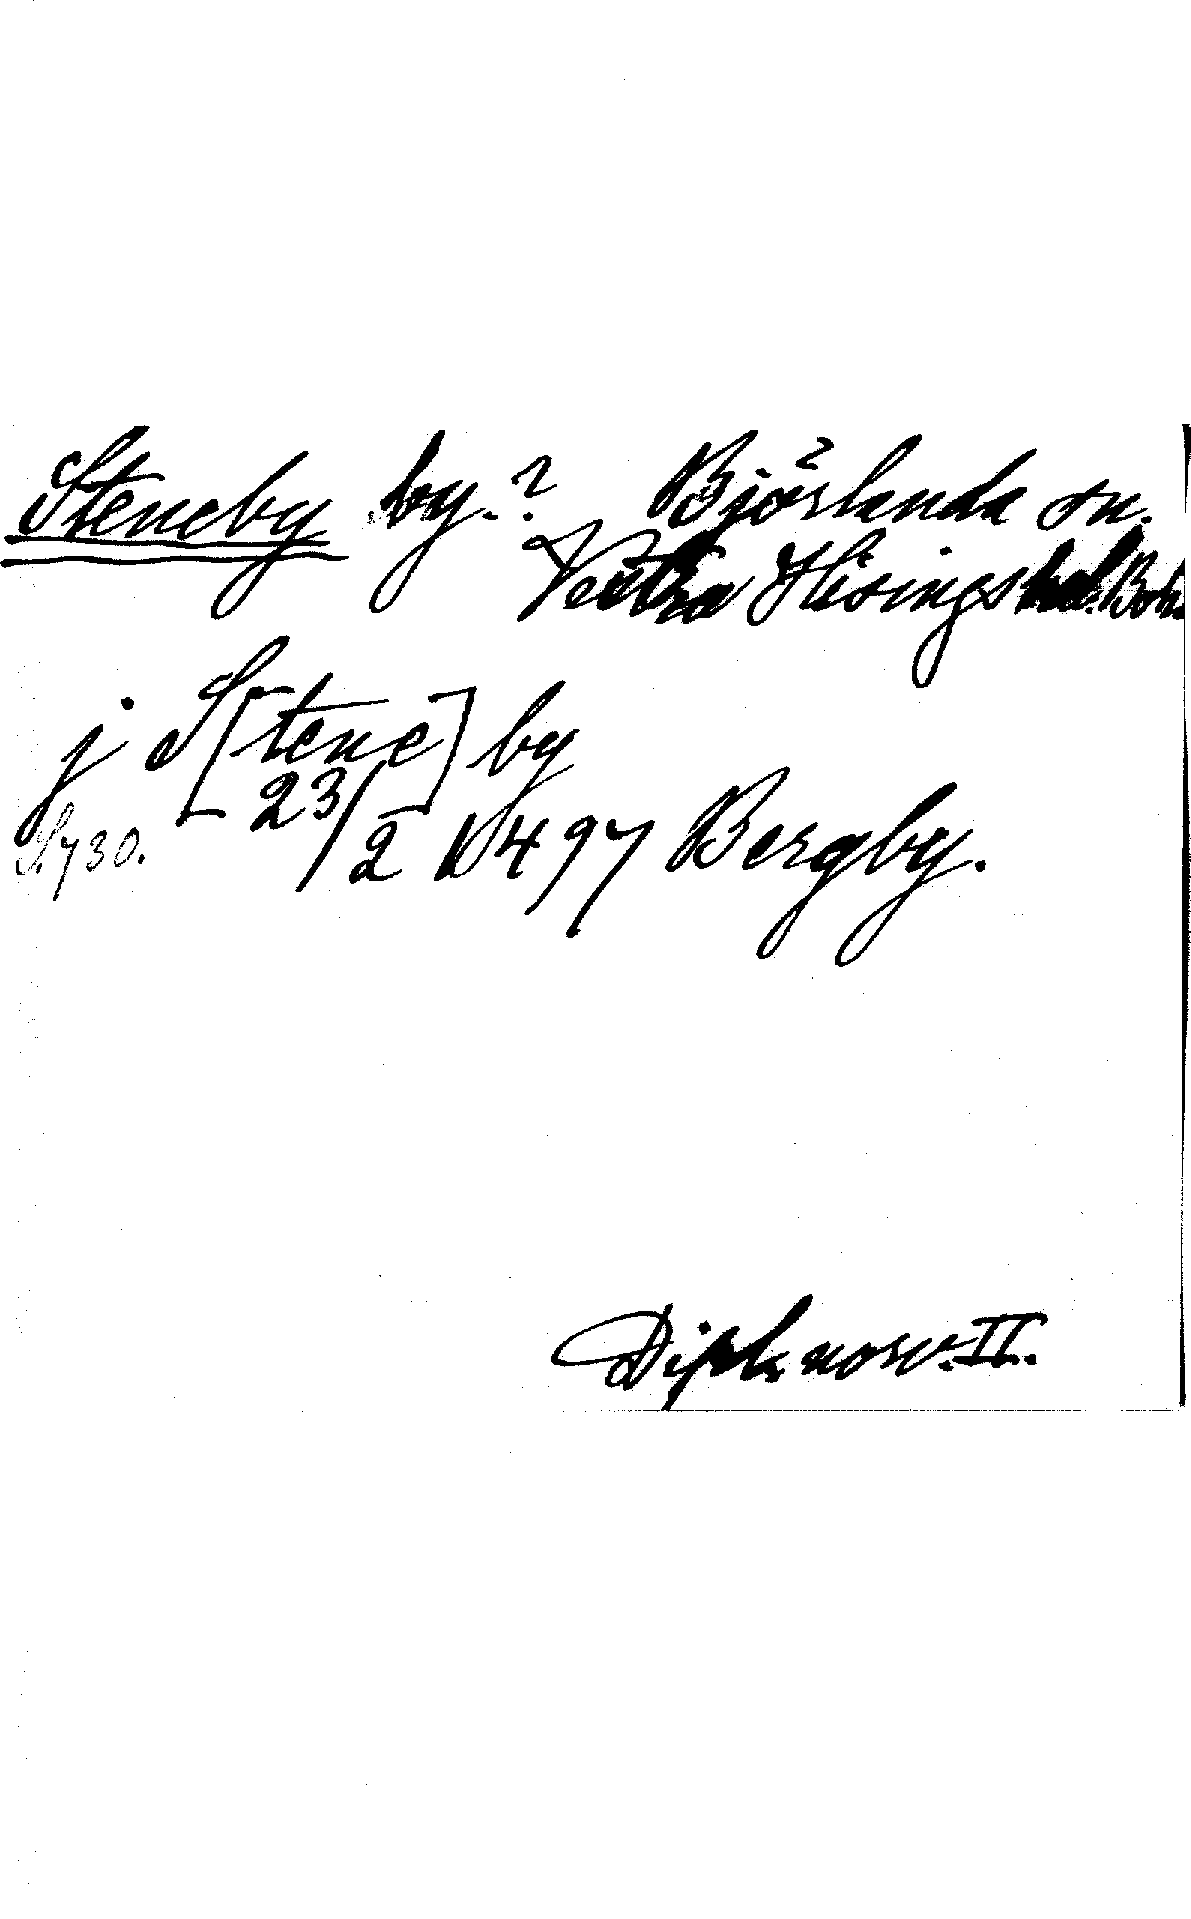 Steneby by.? Björlanda sn.
Västra Hisings hd. Boh.
j S[tene]by
S. 730. 23/2 1497 Bergby.
Dipl. norv. II.